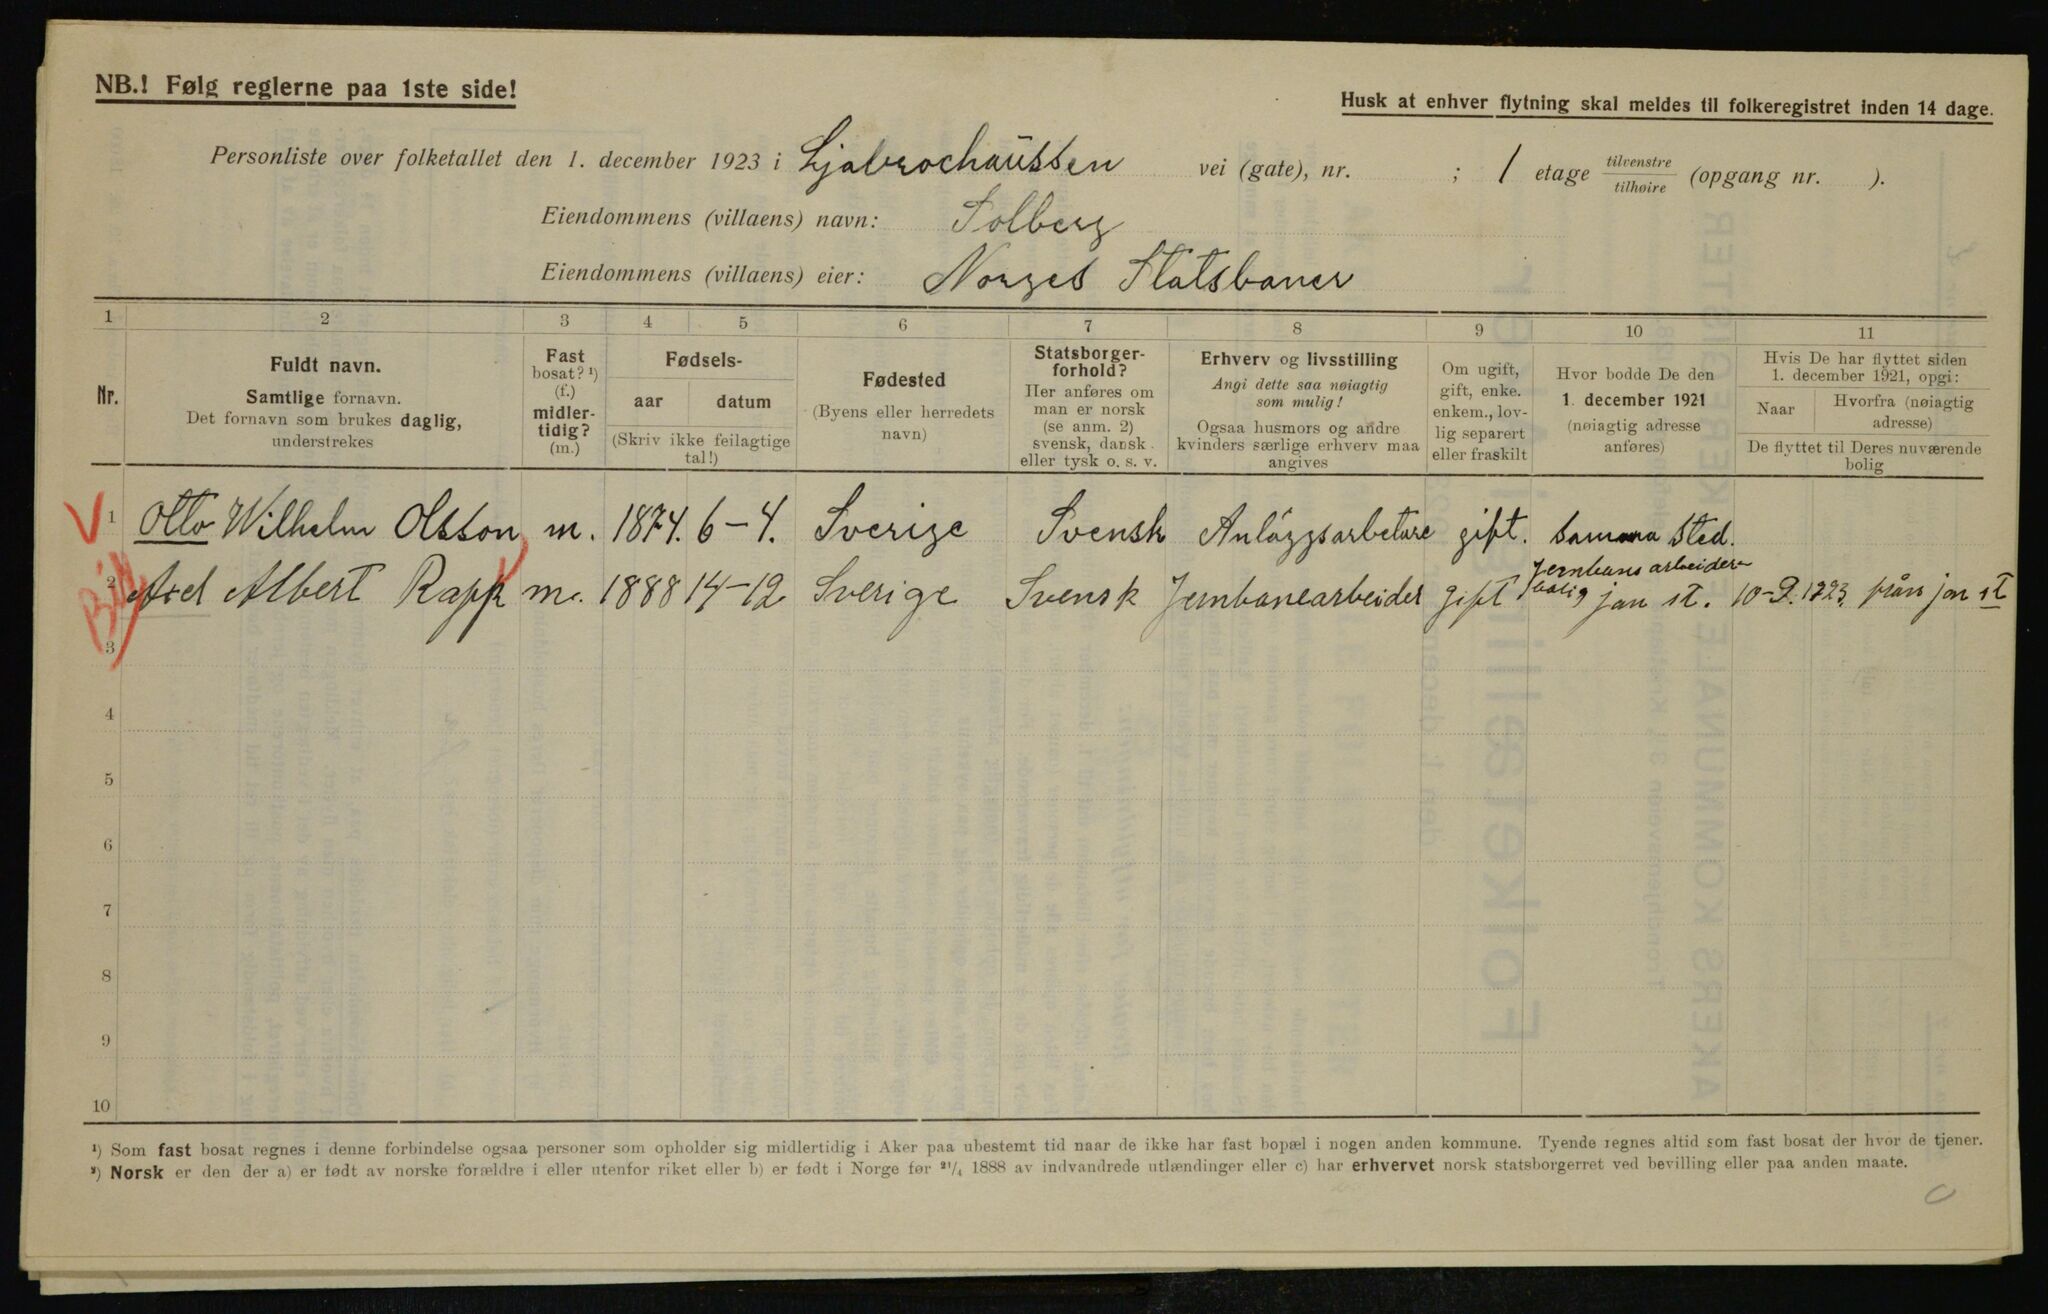 NB.! Følg reglerne paa 1ste side!
Husk at enhver flytning skal meldes til folkeregistret inden 14 dage.
Personliste over folketallet den 1. december 1923 i Ljabrochaüssen vei (gate), nr. ; 1 etage tilvenstre/tilhøire (opgang nr. ).
Eiendommens (villaens) navn: Solberg
Eiendommens (villaens) eier: Norges Statsbaner
1 2 3 4 5 6 7 8 9 10 11
Nr.
Fuldt navn.
Samtlige fornavn.
Det fornavn som brukes daglig,
understrekes
Fast
bosat? ¹)
(f.)
midler-
tidig?
(m.)
Fødsels-
aar datum
(Skriv ikke feilagtige
tal!)
Fødested
(Byens eller herredets
navn)
Statsborger-
forhold?
Her anføres om
man er norsk
(se anm. 2)
svensk, dansk
eller tysk o. s. v.
Erhverv og livsstilling
Angi dette saa nøiagtig
som mulig!
Ogsaa husmors og andre
kvinders særlige erhverv maa
angives
Om ugift,
gift, enke.
enkem., lov-
lig separert
eller fraskilt
Hvor bodde De den
1. december 1921
(nøiagtig adresse
anføres)
Hvis De har flyttet siden
1. december 1921, opgi:
Naar Hvorfra (nøiagtig
adresse)
De flyttet til Deres nuværende
bolig
1 Otto Wilhelm Olsson m. 1874. 6-4. Sverige Svensk Anläggsarbetare gift. Samma Sted.
2 Axel Albert Rapp m. 1888 14-12 Sverige Svensk Jernbanearbeider gift jan st. 10-2. 1923. från jan st
3
4
5
6
7
8
9
10
¹) Som fast bosat regnes i denne forbindelse ogsaa personer som opholder sig midlertidig i Aker paa ubestemt tid naar de ikke har fast bopæl i nogen anden kommune. Tyende regnes altid som fast bosat der hvor de tjener.
²) Norsk er den der a) er født av norske forældre i eller utenfor riket eller b) er født i Norge før ²¹/₄ 1888 av indvandrede utlændinger eller c) har erhvervet norsk statsborgerret ved bevilling eller paa anden maate.